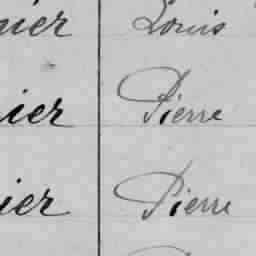 nier Louis
ier Pierre
ier Pierre